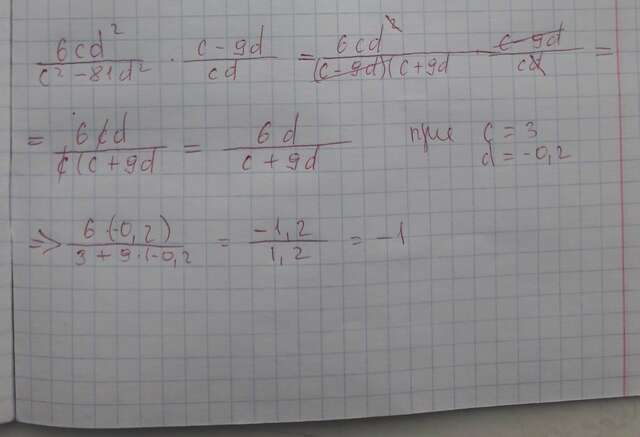 6cd² / c² - 81d² · c - 9d / cd = 6cd² / (c - 9d)(c + 9d · c - 9d / cd =
= 6cd / c(c + 9d = 6d / c + 9d при c = 3
d = -0,2
=> 6·(-0,2) / 3 + 9·(-0,2 = -1,2 / 1,2 = -1